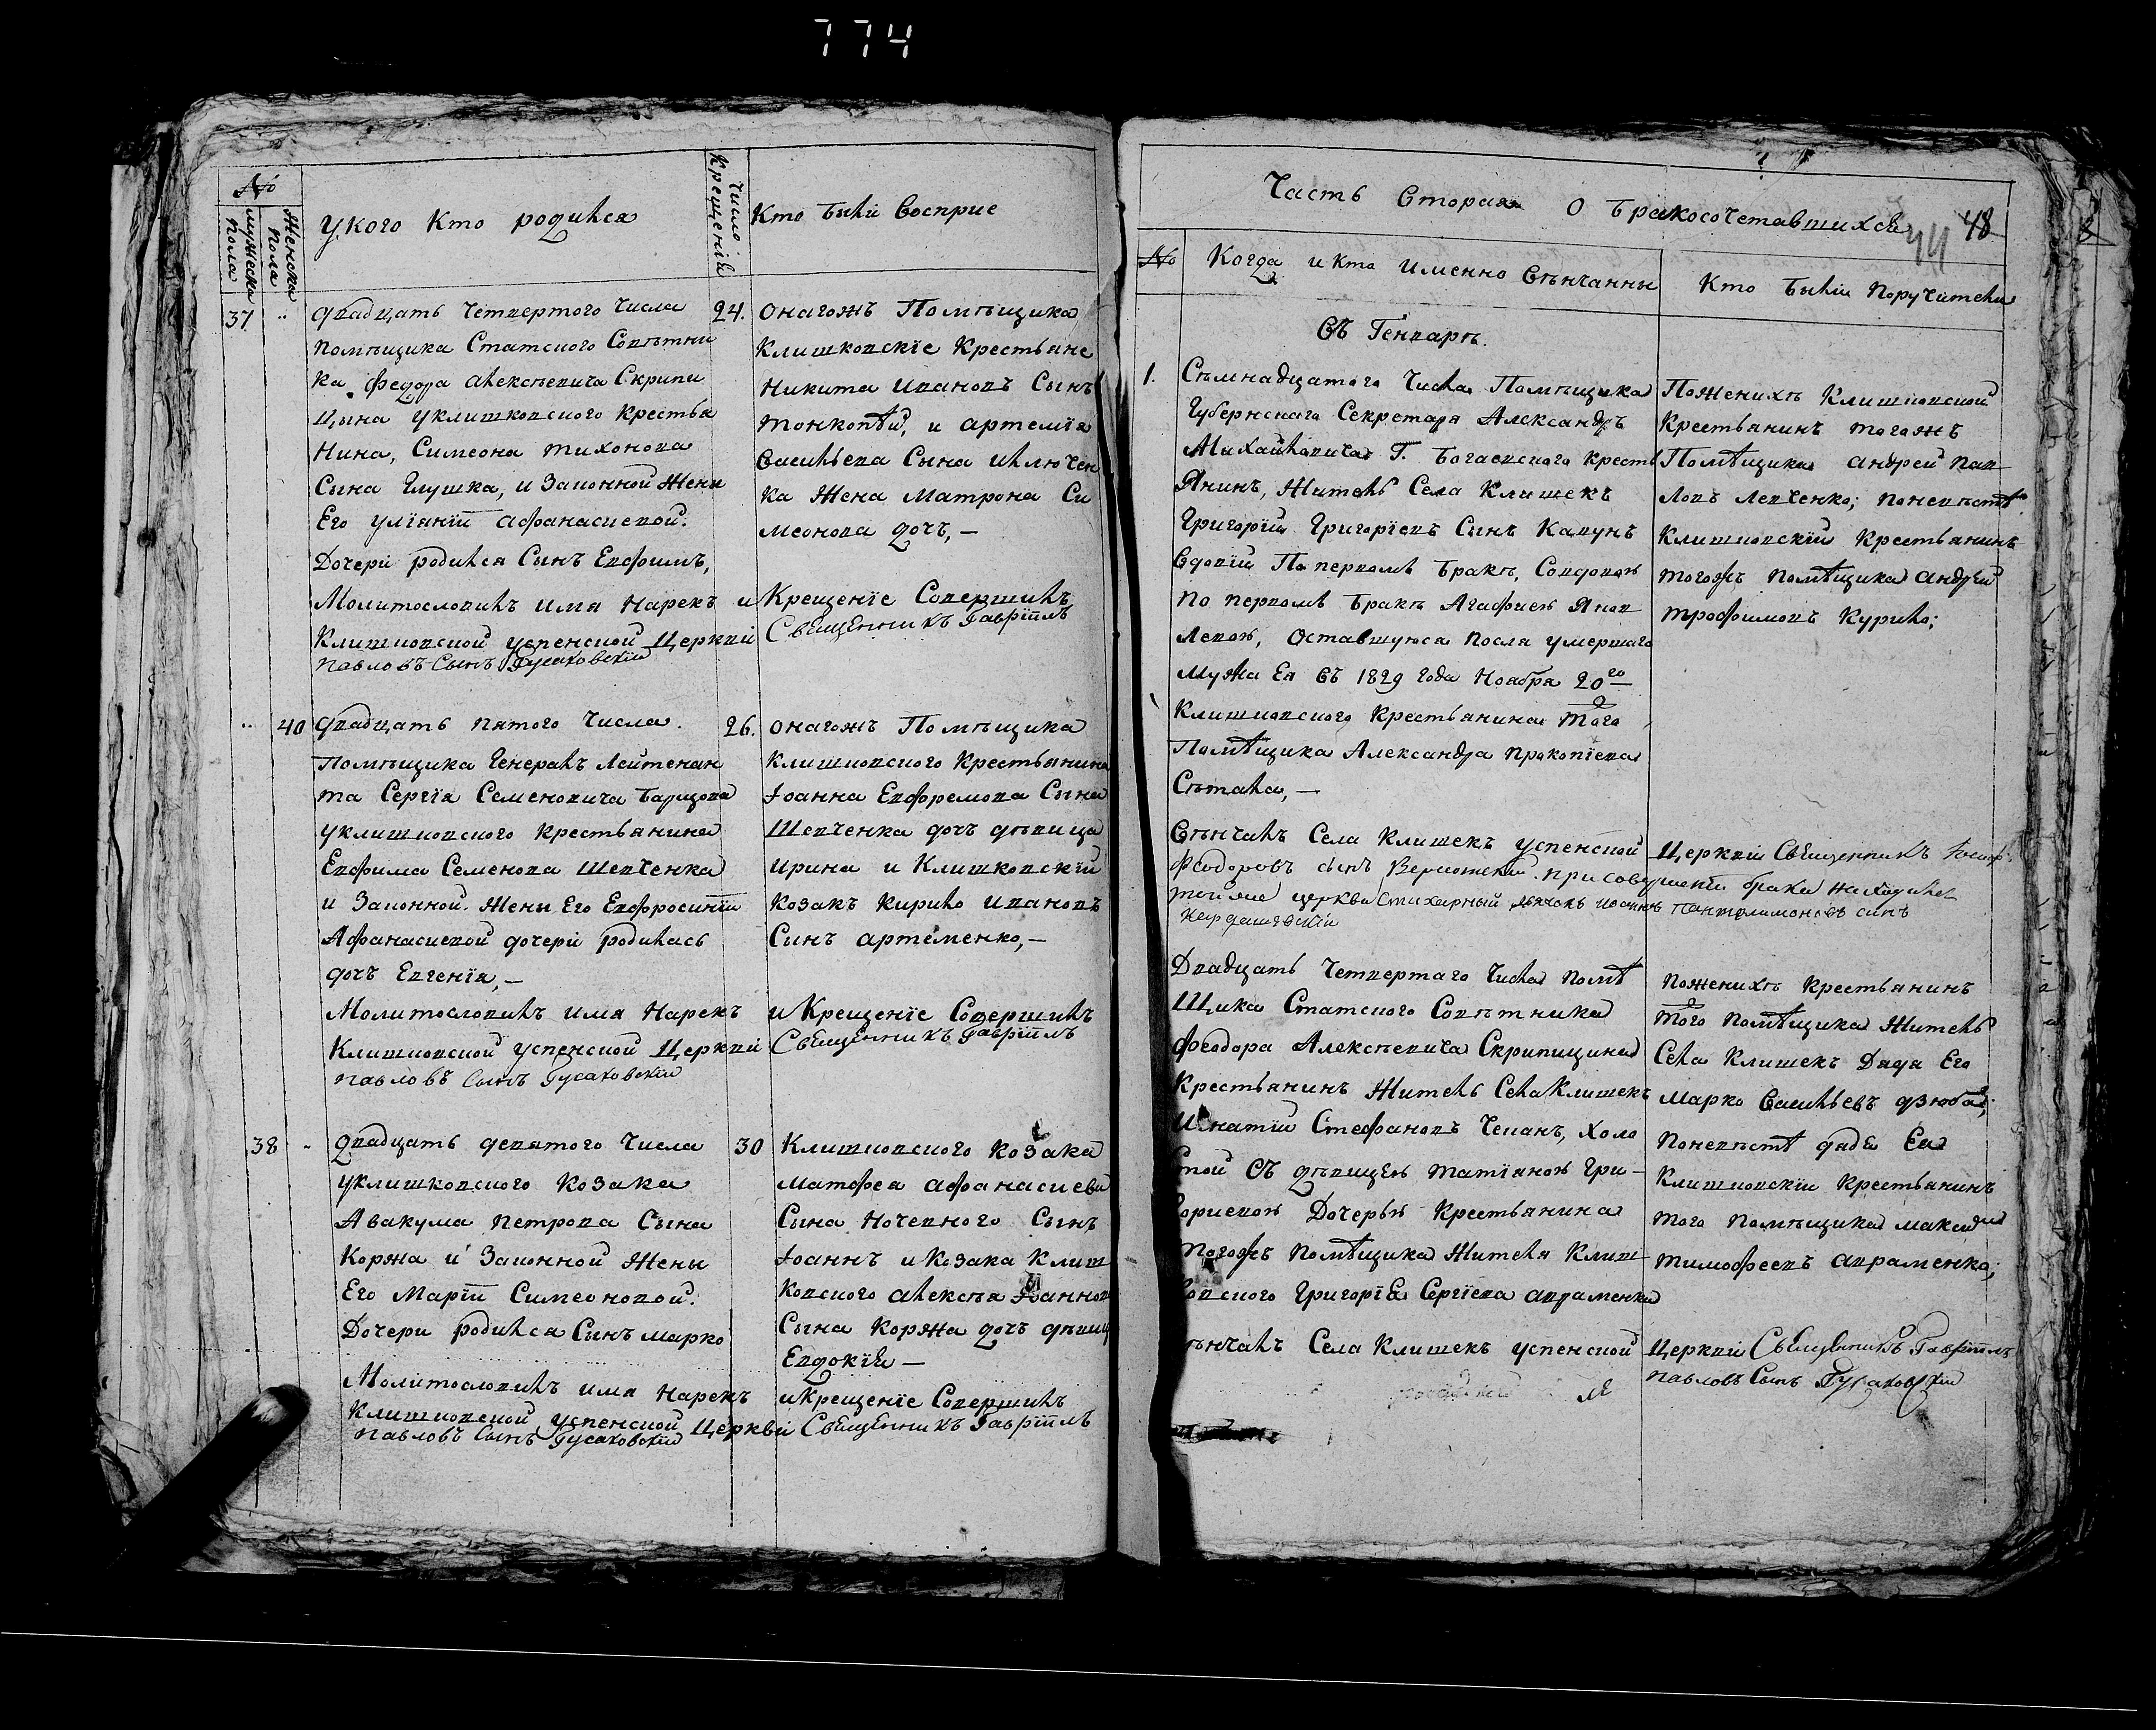 774
№
мужеска пола
Женска пола
У кого Кто родился
Число Крещения
Кто были Восприе
37
Двадцать Четвертого Числа
Помѣщика Статского Совѣтни
ка Федора Алексѣевича Скрипи
цына У клишковского крестья
нина, Симеона Тихонова
Сына Глушка, и Законной Жены
Его Улїянїи Афанасиевой
Дочери родился Сынъ Евфимъ,
Молитвословилъ имя Нарекъ и
Клишковской Успенской Церкви
Павловъ Сынъ Гусаковскїй
24.
Онагожъ Помѣщика
Клишковскїе Крестьяне
Никита Ивановъ Сынъ
и Артемїя
Васильева Сына
ка Жена Матрона Си
меонова дочъ,—
Крещенїе Совершилъ
Священникъ Гаврїилъ
40
Двадцать пятого Числа.
Помѣщика Генералъ Лейтенан
та Сергїя Семеновича
У клишковского крестьянина
Евфима Семенова Шевченка
и Законной Жены Его Евфросинїи
Афанасиевой дочери родилась
дочъ Евгенїя,—
Молитвословилъ имя Нарекъ
Клишковской Успенской Церкви
Павловъ Сынъ Гусаковскїй
26.
Онагожъ Помѣщика
Клишковского Крестьянина
Іоанна Евфремова Сына
Шевченка дочъ дѣвица
Ирина и Клишковскїй
Козакъ Кирило Ивановъ
Синъ Артеменко,—
и Крещенїе Совершилъ
Священникъ Гаврїилъ
38
Двадцать девятого Числа
У клишковского Козака
Авакума Петрова Сына
Коржа и Законной Жены
Его Марїи Симеоновой
Дочери родился Сынъ Марко
Молитвословилъ имя Нарекъ
Клишковской Успенской Церкви
Павловъ Сынъ Гусаковскїй
30
Клишковского Козака
Матфея Афанасиева
Сына Ночевного Сынъ
Іоаннъ и Козака Клиш
ковского Алексѣя Іоаннов
Сына Коржа дочъ дѣвиц
Евдокїя—
и Крещенїе Совершилъ
Священникъ Гаврїилъ
Часть Вторая О Бракосочетавшихся
48
44
№
Когда и Кто Именно Вѣнчанны
Кто Были Поручители
Въ Генваре.
1.
Сѣмнадцатого Числа Помѣщика
Губернскаго Секретаря Александръ
Михайловича Г. Богаевского крестъ
янинъ, Житель Села Клишекъ
Григорїй Григорїевъ Сынъ Кавунъ
Вдовїй По первомъ Бракѣ, Совдовою
по первомъ Бракѣ Агафиею Яков
левою, Оставшуюся После умершаго
Мужа Ея Въ 1829 Года Ноября 20го
Клишковского Крестьянина Того
Помѣщика Александра Прокопїева
По Женихѣ Клишковской
Крестьянинъ тогожъ
Помѣщика Андрей Пав
ловъ Левченко; по невѣстѣ
Клишковскїй Крестьянинъ
тогожъ Помѣщика Андрей
Трофимовъ Курило;
Вѣнчалъ Села Клишекъ Успенской Церкви Священникъ Іосиф
Феодоровъ сынъ При совершенїи брака находился
той же церкви Стихарный дьячокъ Иоаннъ Пантелимоновъ синъ
Двадцать Четвертаго Числа Помѣ
щика Статского Совѣтника
Феодора Алексѣевича Скрипицина
Крестьянинъ Житель Села Клишекъ
Игнатїй Стефановъ Чепанъ, Холо
стой Съ дѣвицею Татїаною Гри-
гориевою Дочерью Крестьянина
тогожъ Помѣщика Жителя Клиш
ковского Григорїя Сергїева Авраменка
По женихѣ Крестьянинъ
того Помѣщика Житель
Села Клишекъ Дядя Его
Марко Васильевъ Дзюба;
По невѣстѣ дядя Ея
Клишковскїй Крестьянинъ
того Помѣщика Максим
Тимофеевъ Авраменко;
Вѣнчалъ Села Клишекъ Успенской Церкви Священникъ Гаврїилъ
Павловъ Сынъ Гусаковскїй